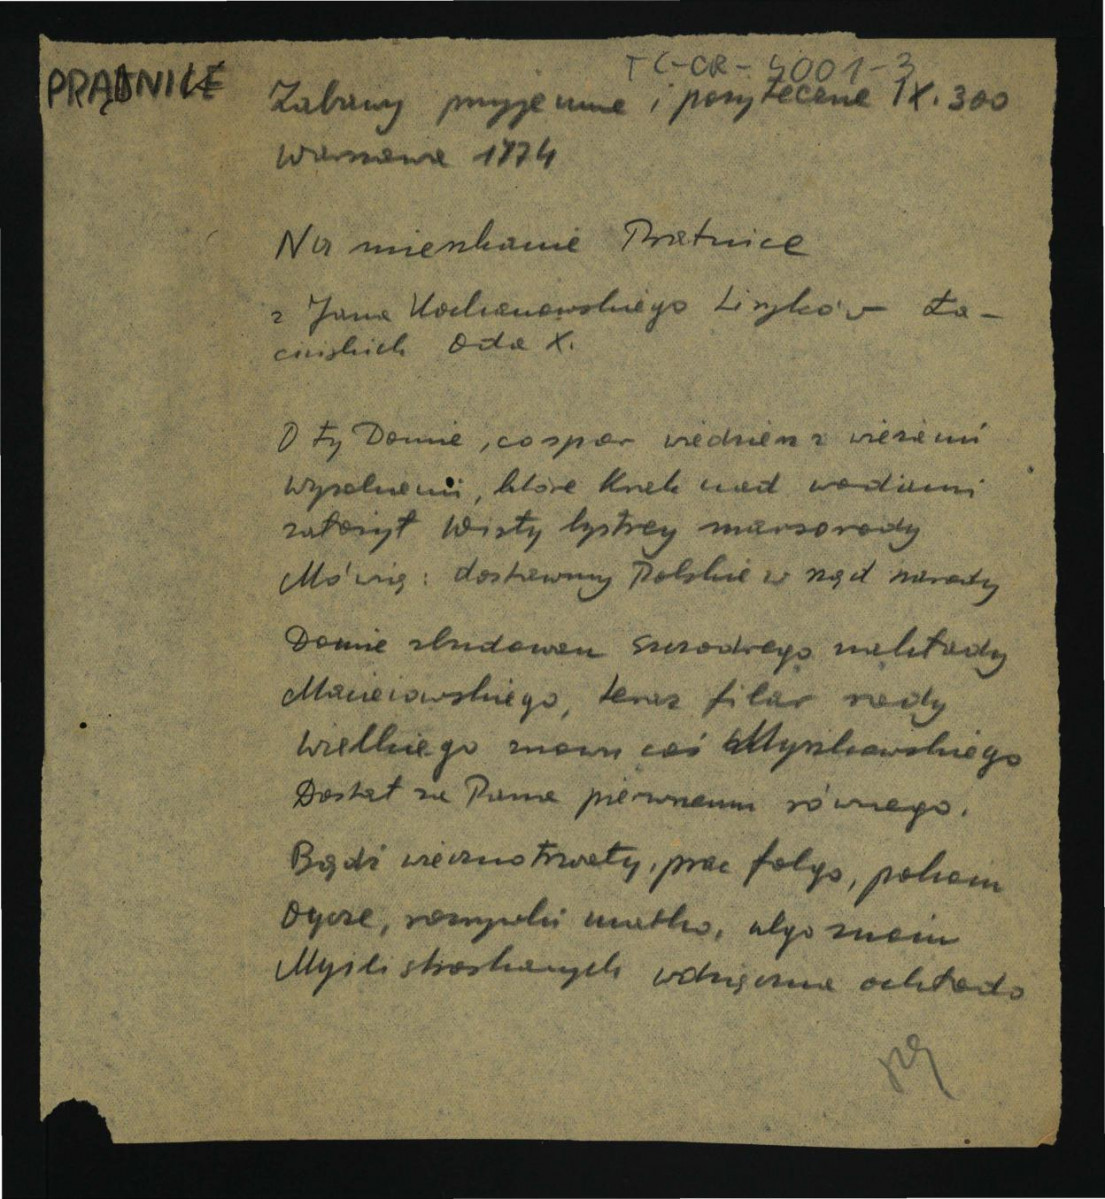 PRĄDNICE
TC-CR-4001-3
Zabawy przyjemne i pożyteczne IX. 300
Warszawa 1774
Na mieszkanie Prątnice
z Jana Kochanowskiego Liryków Ła-
cińskich Oda X.
O ty Domie, co spor wiedziesz z wieżemi
wyzolnemi, które Krak nad wodami
założył Wisły bystrey
Mówię: dostawny Polskie w rząd narody
Domie zbudowan szczodrego nakłady
Maciejowskiego, teraz filar rady
Wielkiego znown coś Myszkowskiego
Dostał za Pana pierwszemu równego.
Bądź wiecznotrwały, prac folgo, pokoiu
Oycze, rozrywki matko, ulgo znoiu
Myśli stroskanych wdzięczna ochłodo